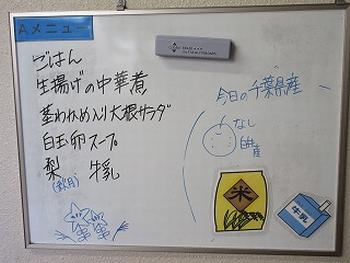 Aメニュー
ごはん
生揚げの中華煮
茎わかめ入り大根サラダ
白玉卵スープ
梨 牛乳
(秋月)
今日の千葉県産
なし
白井産
米
牛乳